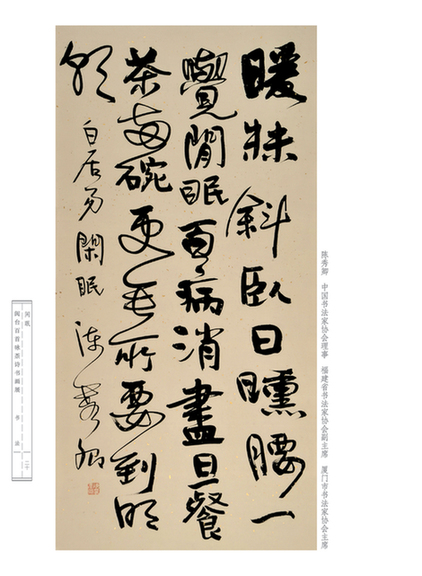 陈秀卿 中国书法家协会理事 福建省书法家协会副主席 厦门市书法家协会主席
暖牀斜臥日曛腰一
覺閒眠百病消盡日一餐
茶兩碗更無所要到明
朝 白居易 閑眠 陳秀卿
闲眠
闽台百首咏茶诗书画展 书法